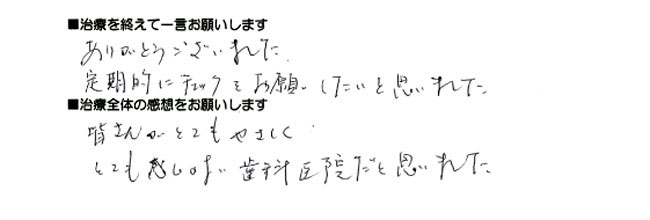 ■治療を終えて一言お願いします
ありがとうございました。
定期的にチェックをお願いしたいと思いました。
■治療全体の感想をお願いします
皆さんがとてもやさしく
とても感じのよい歯科医院だと思いました。